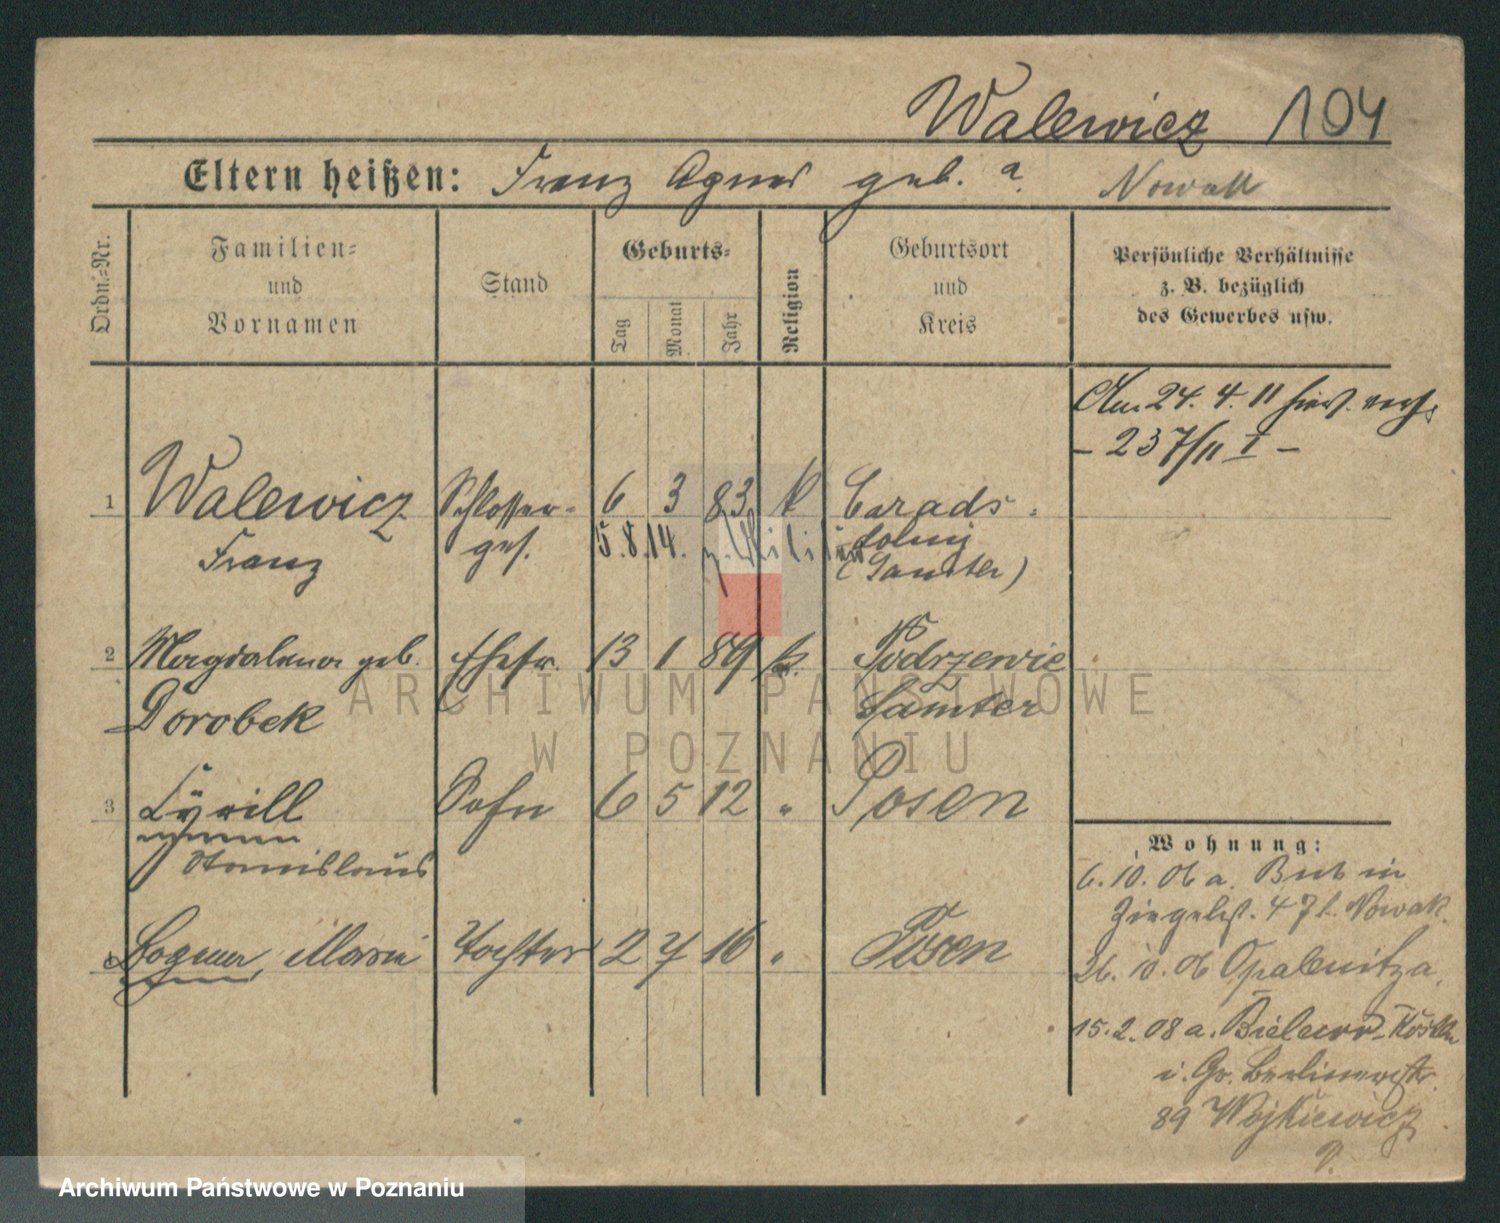 Walewicz 104
Eltern heißen: Franz Agnes geb. ? Nowak
Ordn.-Nr.
Familien-
und
Vornamen
Stand
Geburts-
Tag
Monat
Jahr
Religion
Geburtsort
und
Kreis
Persönliche Verhältnisse
z. B. bezüglich
des Gewerbes usw.
Am 24. 4. 11
- 237/11 I -
1 Walewicz Schlosser- 6 3 83 k
Franz ges. 5.8.14. z. Militär
(Samter)
2 Magdalena geb. Ehefr. 13 1 89 k. Podrzewie
Dorobek Samter
3 Cyrill Sohn 6 5 12 " Posen
Stanislaus
4 Maria Tochter 2 7 16 " Posen
Wohnung:
6. 10. 06 a. Buk in
Ziegelst. 47 b. Nowak.
26. 10. 06 Opalenitza.
15. 2. 08 a.
i. Gr. Berlinerstr.
89 Wojkiewicz
ARCHIWUM PAŃSTWOWE
W POZNANIU
Archiwum Państwowe w Poznaniu